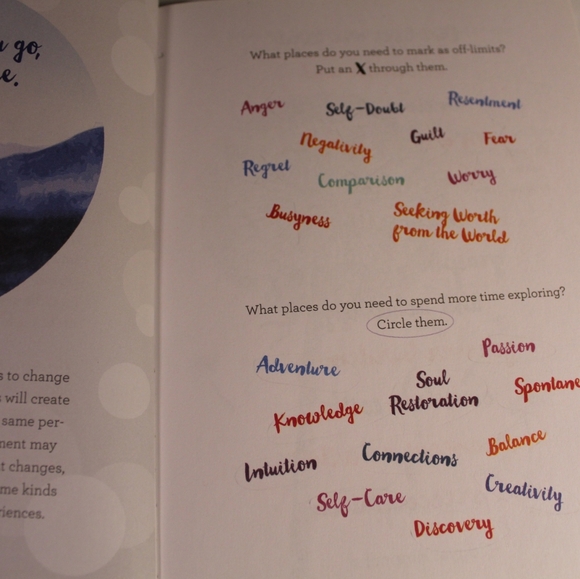 go,
e.
s to change
will create
same per-
ment may
t changes,
me kinds
riences.
What places do you need to mark as off-limits?
Put an X through them.
Anger Self-Doubt Resentment
Negativity Guilt Fear
Regret Comparison Worry
Busyness Seeking Worth
from the World
What places do you need to spend more time exploring?
Circle them.
Adventure Passion
Soul
Restoration Spontane
Knowledge
Intuition Connections Balance
Self-Care Creativity
Discovery